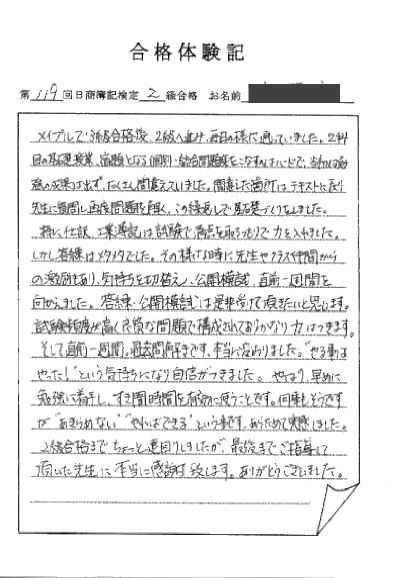 合格体験記
第119回日商簿記検定2級合格 お名前
メイプルで3級合格後、2級へ進み、毎日の様に通っていました。2科
目の基礎授業、宿題となる個別・総合問題集をこなすのはハードで、当初は勉
強の成果は出ず、たくさん間違えていました。間違えた箇所はテキストに戻り
先生に質問し、再度問題を解く、この繰返しで基礎づくりをしました。
特に仕訳、工業簿記は試験で高点を取るつもりで力を入れました。
しかし答練はメタメタでした。その様な時に先生やクラス仲間から
の激励もあり、気持ちを切替え、公開模試、直前一週間を
向かえました。答練・公開模試は是非受けて頂きたいと思います。
試験頻度が高く良質な問題で構成されておりかなり力はつきます。
そして直前一週間。過去問解きです。本当に変わりました。"やる事は
やった!"という気持ちになり自信がつきました。やはり、早めに
勉強に着手し、すき間時間を有効に使うことです。何事もそうです
が"あきらめない""やればできる"という事です。あらためて実感しました。
2級合格までちょっと遠回りしましたが、最後までご指導して
頂いた先生に本当に感謝致します。ありがとうございました。